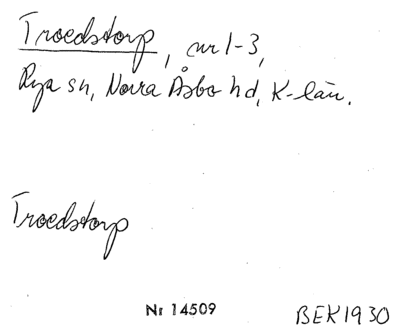 Troedstorp, nr 1-3,
Rya sn, Norra Åsbo hd, K-län.
Troedstorp
Nr 14509
BEK1930